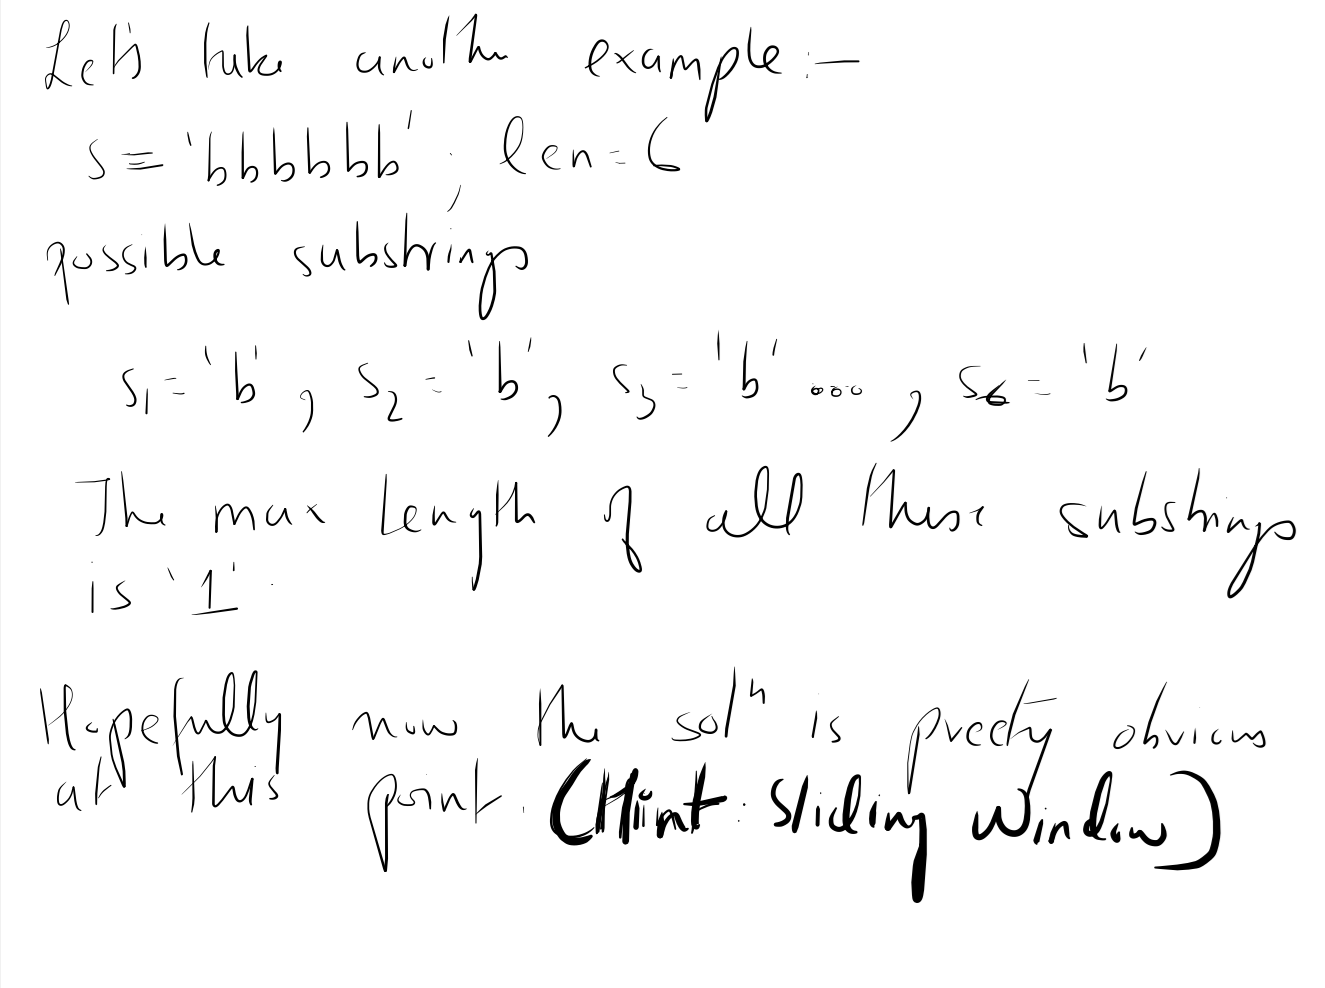 Let's take another example:-
s = 'bbbbbb', len = 6
possible substrings
s1 = 'b', s2 = 'b', s3 = 'b' ...., s6 = 'b'
The max length of all these substrings
is '1'.
Hopefully now the solⁿ is preety obvious
at this point. (Hint: Sliding Window)